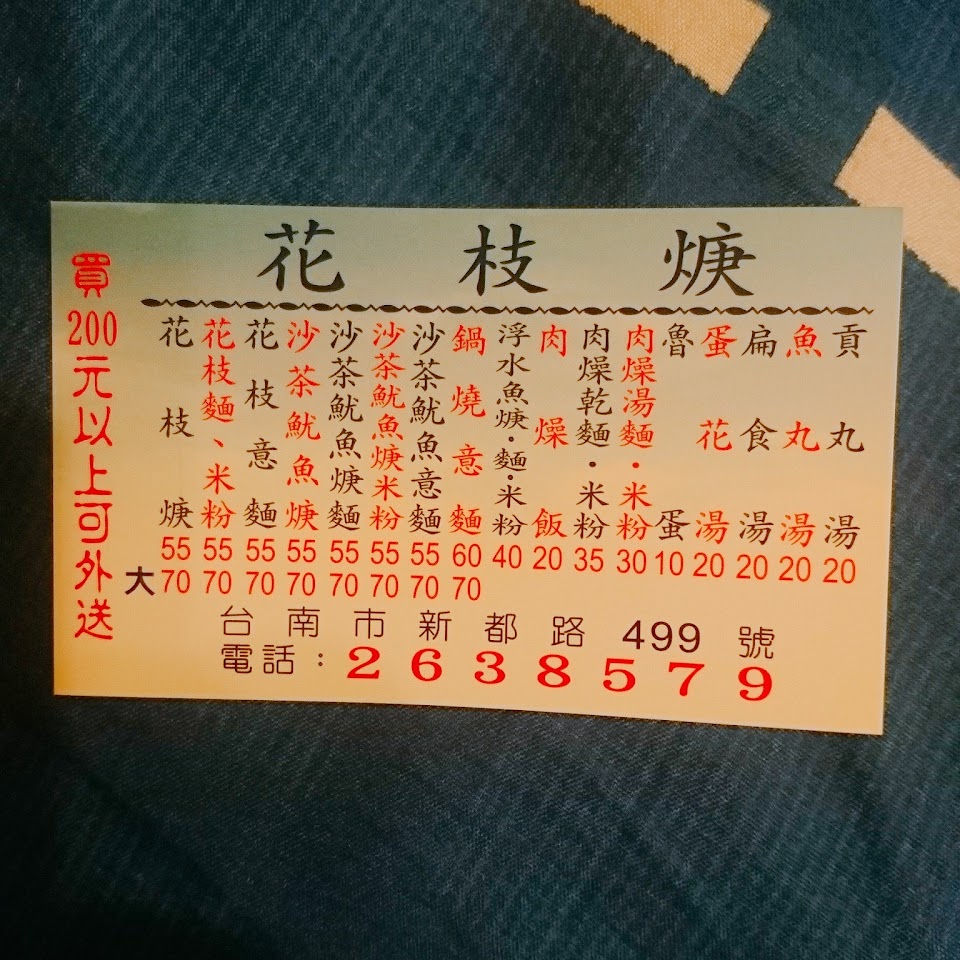 花枝焿
買200元以上可外送
花枝焿 55 70
花枝麵、米粉 55 70
花枝意麵 55 70
沙茶魷魚焿 55 70
沙茶魷魚焿麵 55 70
沙茶魷魚焿米粉 55 70
沙茶魷魚意麵 55 70
鍋燒意麵 60 70
浮水魚焿·麵·米粉 40
肉燥飯 20
肉燥乾麵·米粉 35
肉燥湯麵·米粉 30
魯蛋 10
蛋花湯 20
扁食湯 20
魚丸湯 20
貢丸湯 20
大
台南市新都路499號
電話：2638579